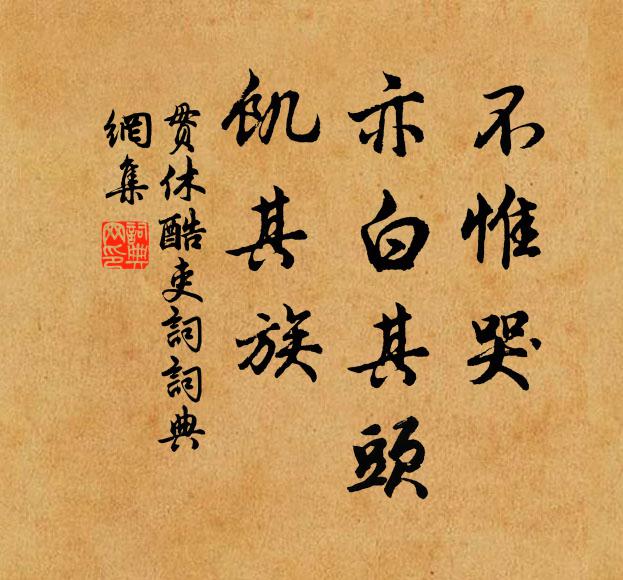 不惟哭
亦白其頭
飢其族
贯休酷吏詞詞典
網集
詞典
网印